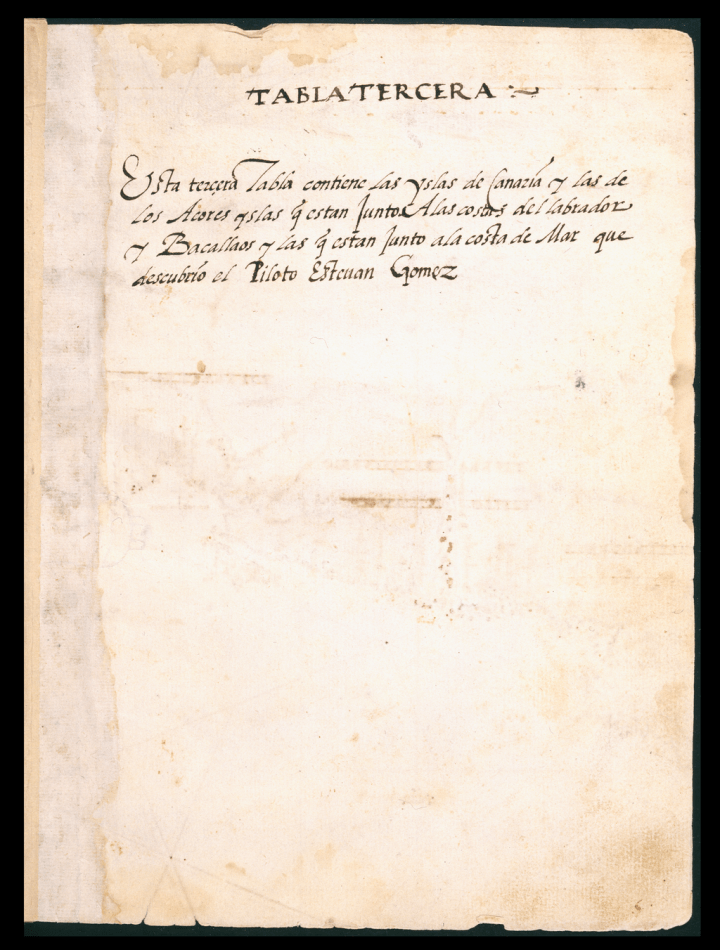 TABLA TERCERA
Esta tercera Tabla contiene las yslas de Canaria y las de
los Açores yslas q̃ estan Junto Alas costas del labrador
y Bacallaos y las q̃ estan Junto ala costa de Mar que
descubrio el Piloto Esteuan Gomez